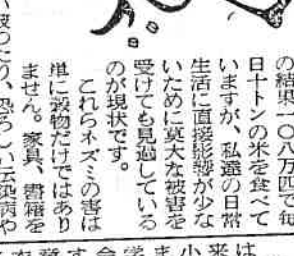 の結果一〇八万匹で毎
日十トンの米を食べて
いますが、私達の日常
生活に直接影響が少な
いために莫大な被害を
受けても見過している
のが現状です。
これらネズミの害は
単に穀物だけではあり
ません。家具、書籍を
恐ろしい伝染病や